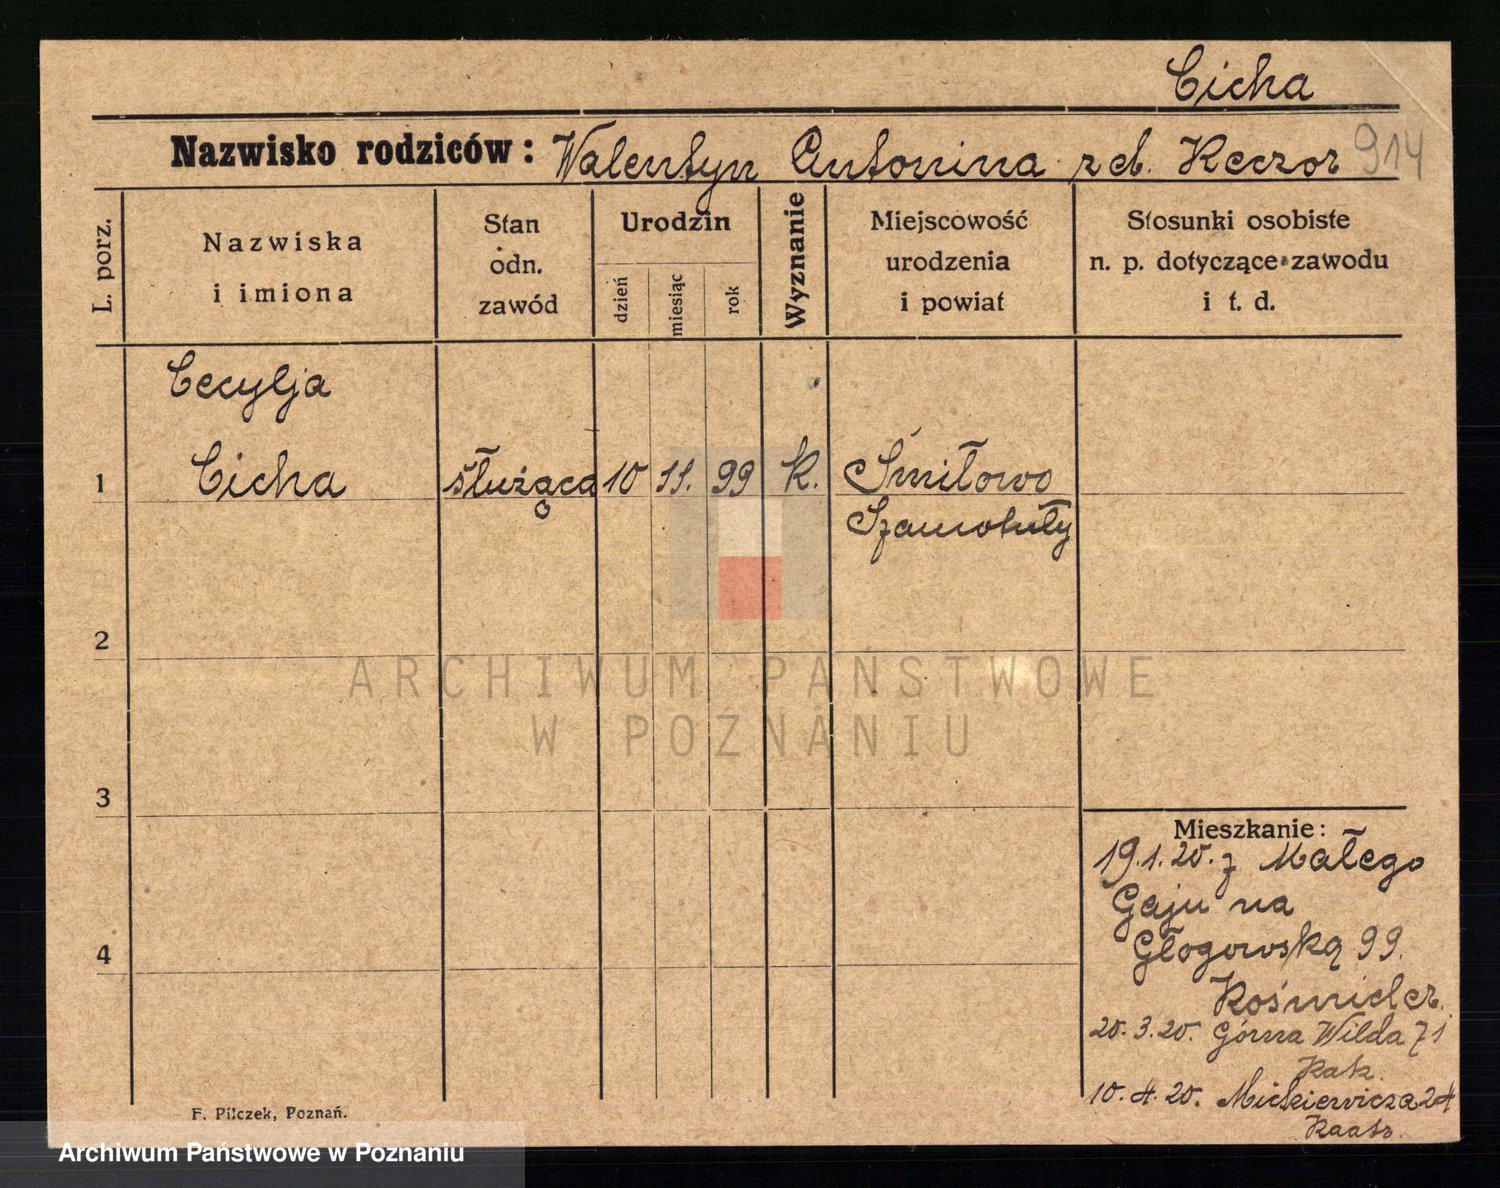 Cicha
Nazwisko rodziców: Walentyn Antonina z d. Keczor 914
L. porz.
Nazwiska
i imiona
Stan
odn.
zawód
Urodzin
dzień
miesiąc
rok
Wyznanie
Miejscowość
urodzenia
i powiat
Stosunki osobiste
n. p. dotyczące zawodu
i t. d.
Cecylja
1 Cicha służąca 10 11. 99 k. Śmiłowo
Szamotuły
2
ARCHIWUM PAŃSTWOWE
W POZNANIU
3
Mieszkanie:
19.1.20. z Małego
Gaju na
Głogowską 99.
4
Kośmider.
20.3.20. Górna Wilda 71
10.4.20. Mickiewicza 24
F. Pilczek, Poznań.
Archiwum Państwowe w Poznaniu